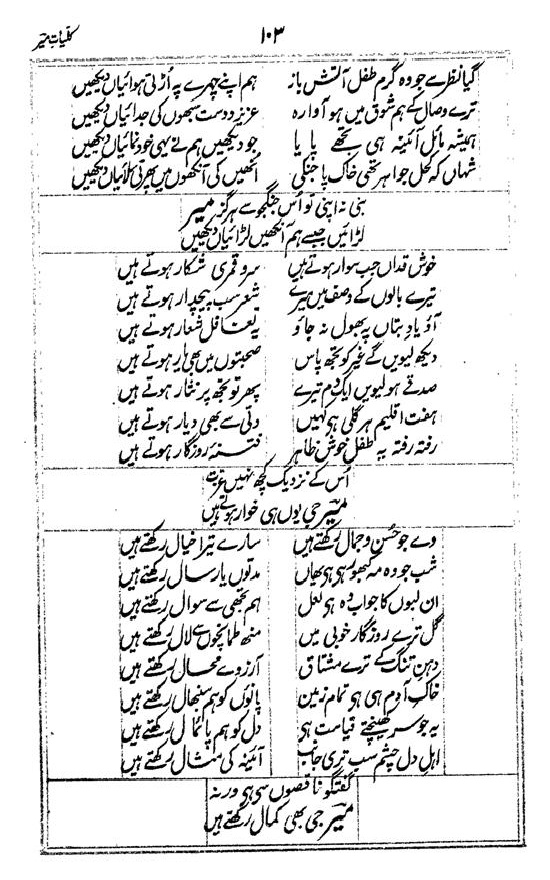 کلیات میر
۱۰۳
گیا نظر سے جو وہ گرم طفل آتش باز ہم اپنے چہرے پہ اُڑتی ہوائیاں دیکھیں
ترے وصال کے ہم شوق میں ہو آوارہ عزیز دوست سبھوں کی جدائیاں دیکھیں
ہمیشہ مائل آئینہ ہی تجھے پایا جو دیکھیں ہم نے یہی خود نمائیاں دیکھیں
شہاں کہ کحل جواہر تھی خاک پا جنکی اُنھیں کی آنکھوں میں پھرتی سلائیاں دیکھیں
بنی نہ اپنی تو اُس جنگجو سے ہرگز میرؔ
لڑائیں جیسے ہم آنکھیں لڑائیاں دیکھیں
خوش قداں جب سوار ہوتے ہیں سرو قمری شکار ہوتے ہیں
تیرے بالوں کے وصف میں میرے شعر سب پیچدار ہوتے ہیں
آؤ یاد بتاں پہ بھول نہ جاؤ یہ تغافل شعار ہوتے ہیں
دیکھ لیویں گے غیر کو تجھ پاس صحبتوں میں بھی یار ہوتے ہیں
صدقے ہو لیویں ایک دم تیرے پھر تو تجھ پر نثار ہوتے ہیں
ہفت اقلیم ہر گلی ہی کہیں دلی سے بھی دیار ہوتے ہیں
رفتہ رفتہ یہ طفل خوش ظاہر فتنۂ روزگار ہوتے ہیں
اُس کے نزدیک کچھ نہیں عزت
میرؔ جی یوں ہی خوار ہوتے ہیں
وے جو حسن و جمال رکھتے ہیں سارے تیرا خیال رکھتے ہیں
شب جو وہ مہ کبھو رہی ہی یھاں مدتوں یار سال رکھتے ہیں
ان لبوں کا جواب دہ ہی لعل ہم تجھی سے سوال رکھتے ہیں
گل ترے روزگار خوبی میں منھ طمانچوں سے لال رکھتے ہیں
دہن تنگ کے ترے مشتاق آرزوے محال رکھتے ہیں
خاک آدم ہی ہو تمام زمین پانوں کو ہم سنبھال رکھتے ہیں
یہ جو سر کھینچے تو قیامت ہو دل کو ہم پائمال رکھتے ہیں
اہل دل چشم سب تری جانب آئینہ کی مثال رکھتے ہیں
گفتگو ناقصوں سی ہی ورنہ
میرؔ جی بھی کمال رکھتے ہیں